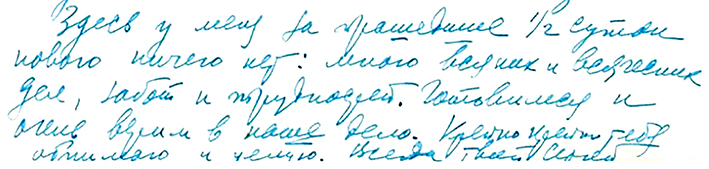 Здесь у меня за прошедшие 1/2 суток
нового ничего нет: много всяких и всяческих
дел, забот и трудностей. Готовимся и
очень верим в наше дело. Крепко крепко тебя
обнимаю и целую. Всегда твой Сергей